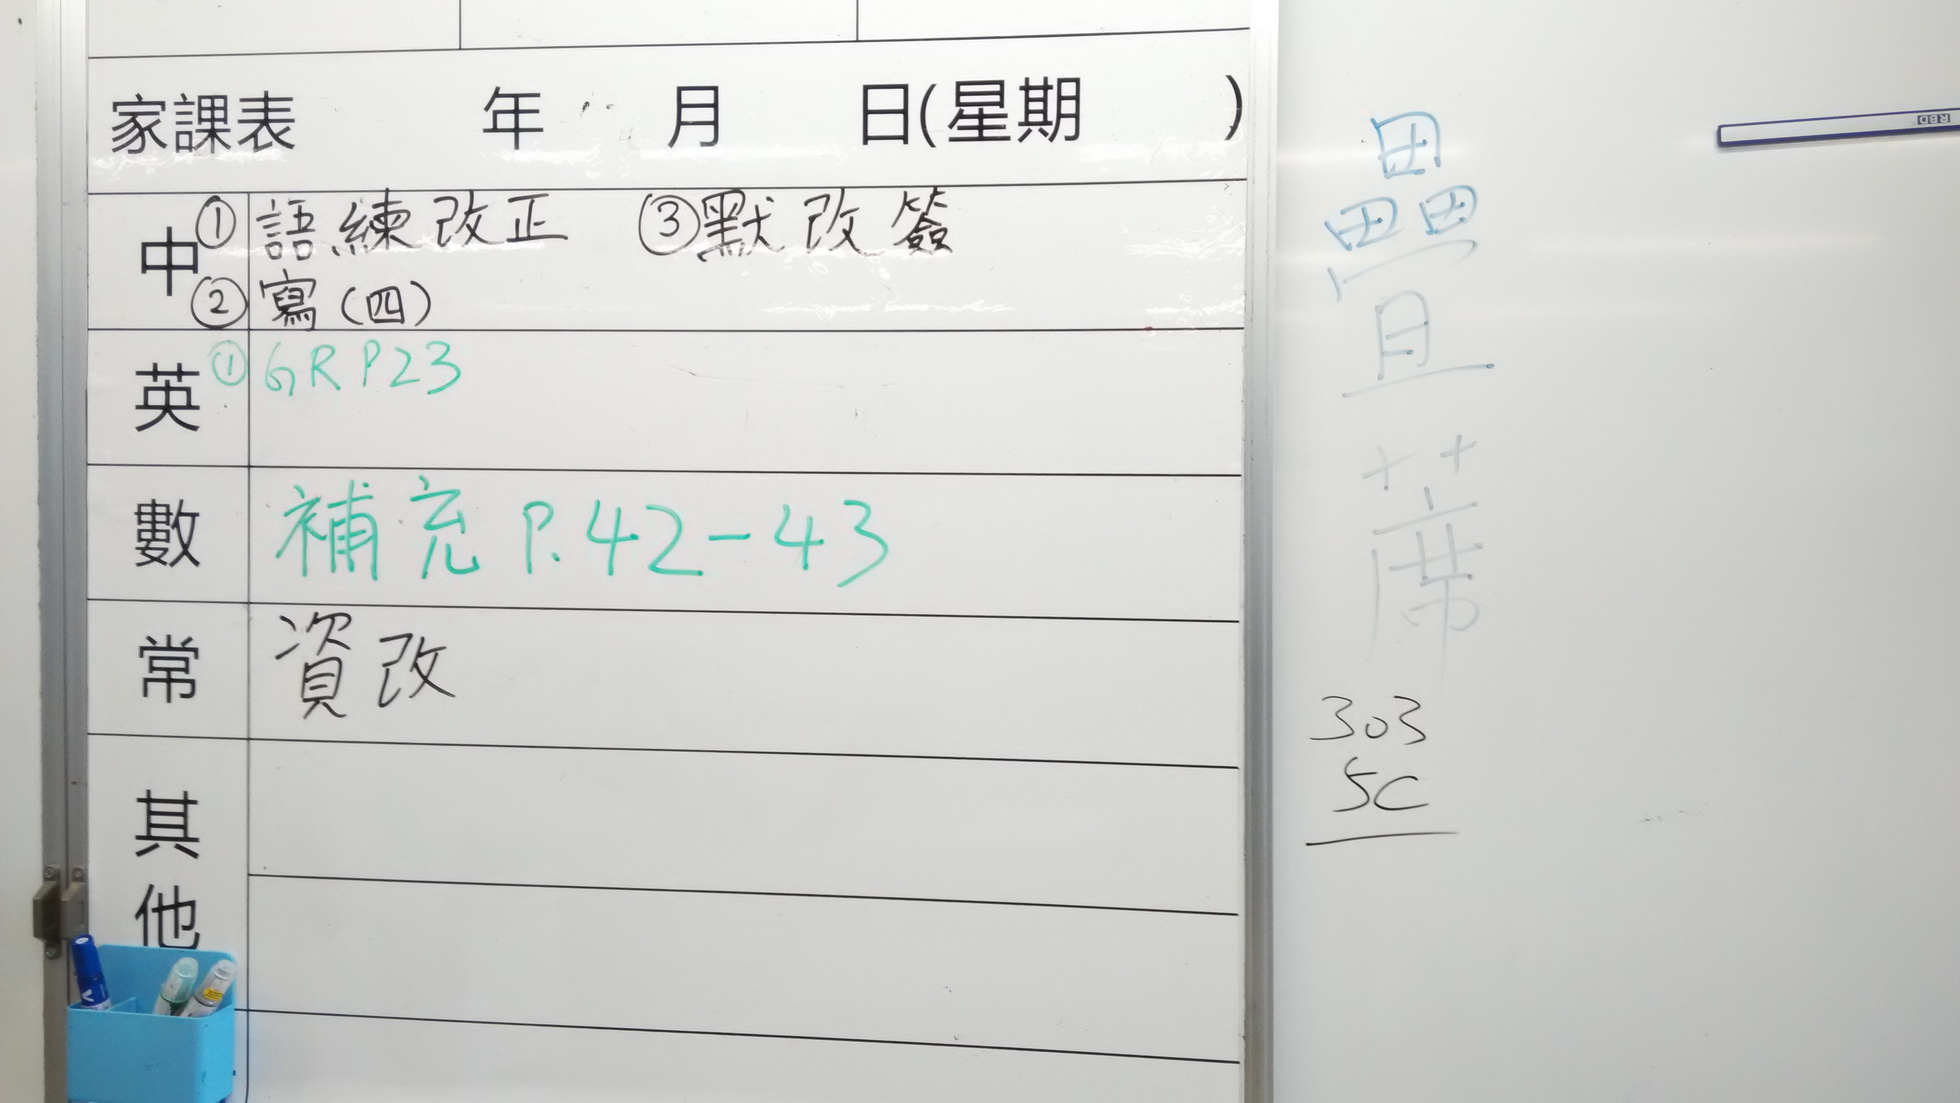 家課表 年 月 日(星期 )
中 ① 語練改正 ③默改簽
② 寫(四)
英 ① GR P23
數 補充 P.42-43
常 資改
其他
疊
蓆
303
5C